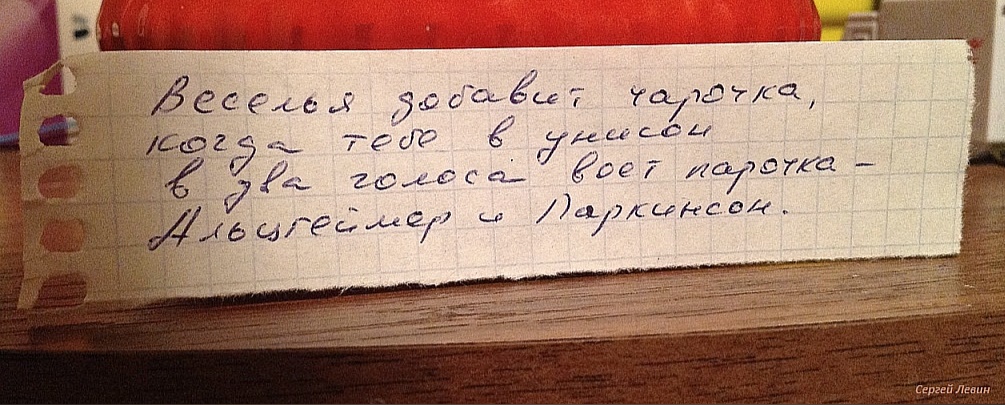 Веселья добавит чарочка,
когда тебе в унисон
в два голоса воет парочка –
Альцгеймер и Паркинсон.
Сергей Левин